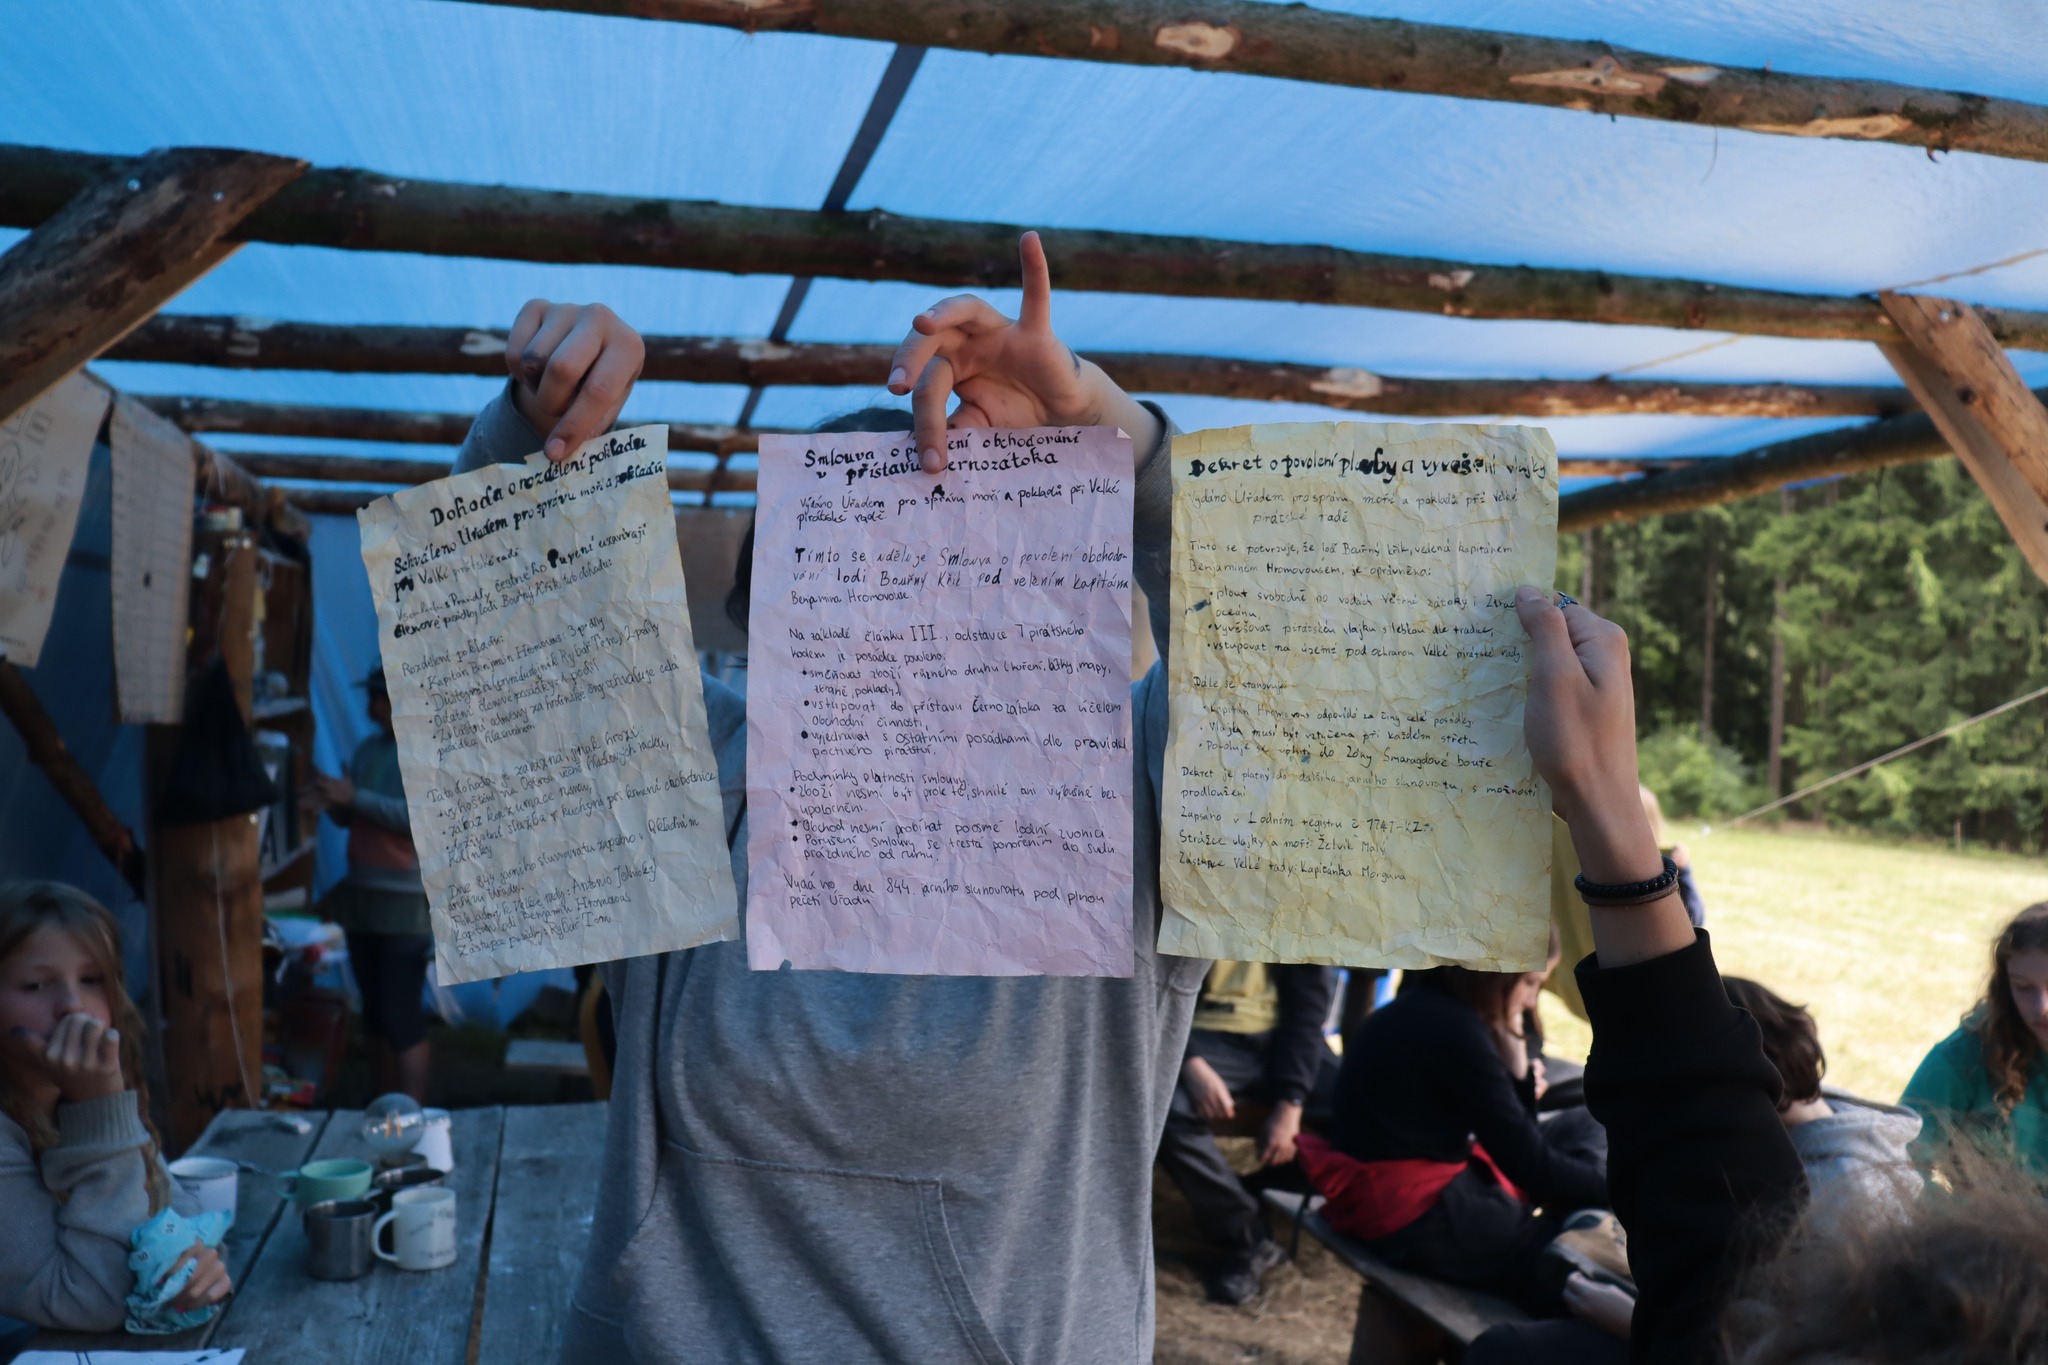 Dohoda o rozdělení pokladu
Schváleno Úřadem pro správu moří a pokladů
při Velké pirátské radě
členové posádky lodi Bouřný Křik tuto dohodu:
Rozdělení pokladu:
• Kapitán Benjamin Hromovous: 3 podíly
Rybář Tom, 2 podíly
• Ostatní členové posádky: 1 podíl
• Zvláštní odměny za hrdinské činy odhlasuje celá
posádka
Tato dohoda je závazná, jinak hrozí:
• zákaz konzumace rumu,
Dne 844. jarního slunovratu zapsáno v Pokladním
archivu Úřadu.
Kapitán lodi: Benjamin Hromovous
Zástupce posádky: Rybář Tom
Smlouva o obchodování
v přístavu Černozátoka
Vydáno Úřadem pro správu moří a pokladů při Velké
pirátské radě
Tímto se uděluje Smlouva o povolení obchodo-
vání lodi Bouřný Křik pod velením kapitána
Benjamina Hromovouse.
Na základě článku III., odstavce 7 pirátského
kodexu je posádce povoleno:
• směňovat zboží různého druhu (koření, látky, mapy,
zbraně, poklady),
• vstupovat do přístavu Černozátoka za účelem
obchodní činnosti,
• vyjednávat s ostatními posádkami dle pravidel
poctivého pirátství.
Podmínky platnosti smlouvy:
• zboží nesmí být prokleté, shnilé ani výbušné bez
upozornění.
• Obchod nesmí probíhat po osmé lodní zvonici
• Porušení smlouvy se trestá ponořením do sudu
prázdného od rumu.
Vydáno dne 844. jarního slunovratu pod plnou
pečetí Úřadu
Dekret o povolení plavby a vyvěšení vlajky
Vydáno Úřadem pro správu moří a pokladů při Velké
pirátské radě
Tímto se potvrzuje, že loď Bouřný křik, vedená kapitánem
Benjaminem Hromovousem, je oprávněna:
• plout svobodně po vodách Větrné zátoky i
oceánu,
• vyvěšovat pirátskou vlajku s lebkou dle tradice,
• vstupovat na území pod ochranou Velké pirátské rady.
Dále se stanovuje:
• Kapitán Hromovous odpovídá za činy celé posádky.
• Vlajka musí být vztyčena při každém střetu
• Povoluje se vplutí do zóny Smaragdové bouře
Dekret je platný do dalšího jarního slunovratu, s možností
prodloužení
Zapsáno v Lodním registru č. 1747-KZ-
Strážce vlajky a moří: Želvík Malý
Zástupce Velké rady: Kapitánka Morgana